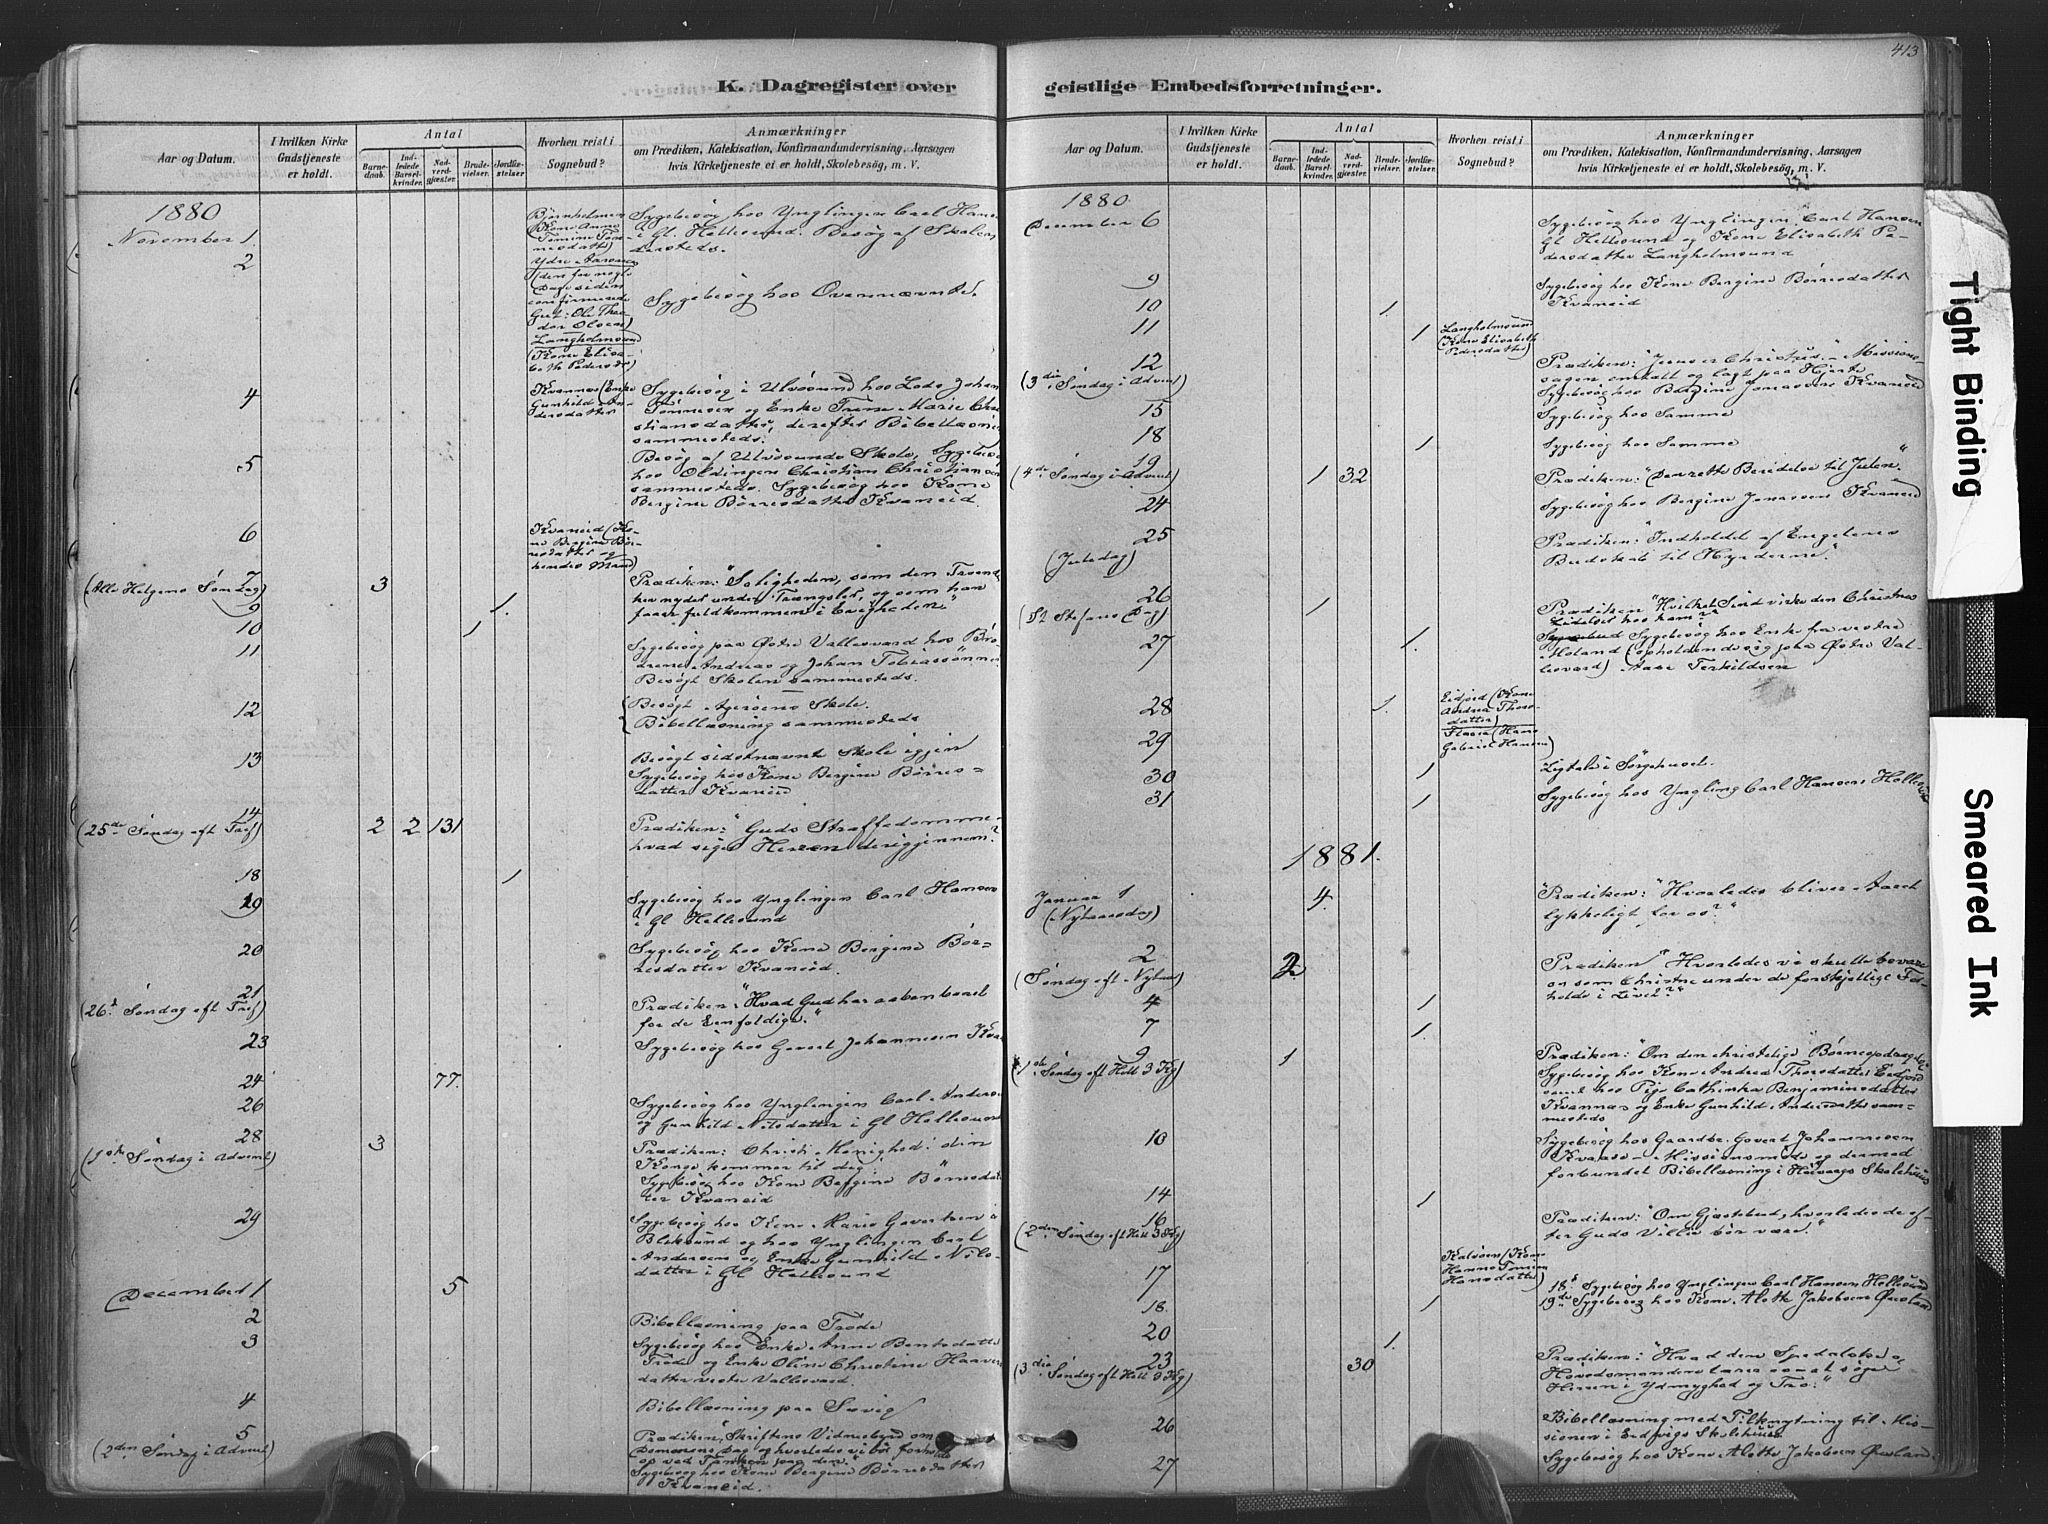 413
K. Dagregister over geistlige Embedsforretninger.
Aar og Datum.
I hvilken Kirke Gudstjeneste er holdt.
Antal
Barnedaab.
Indledede Barselkvinder.
Nadverdgjæster.
Brudevielser.
Jordfæstelser
Hvorhen reist i Sognebud?
Anmærkninger
om Prædiken, Katekisation, Konfirmandundervisning, Aarsagen
hvis Kirketjeneste ei er holdt, Skolebesög, m. V.
1880
November 1.
Bjørnholmen
(Kone Anne
Tomine
Sygebesøg hos Ynglingen Carl Hansen
i Gl. Hellesund. Besøg af Skolen
dersteds.
2
Ydre Aarøen
(den for nogle
Dage siden
confirmerede
Gut: Ole Theodor
Olsen)
Langholmsund
(Kone Elisabeth
Pedersd.)
Sygebesøg hos Ovennævnte.
4
Kvannes (Enke
Gunhild Andersdatter
Sygebesøg i Ulvøsund hos Lods Johan
Tønnesen og Enke Trine Marie Christiansdatter,
derefter Bibellæsning
sammesteds.
5
Besøg af Ulvøsunds Skole, Sygebesøg
hos Oldingen Christian Christiansen
sammesteds. Sygebesøg hos Kone
Bergine Børresdatter Kvaneid.
6
Kvaneid (Kone
Bergine Børresdatter
og
hendes Mand
7
(Alle Helgens Søndag)
3
Prædiken: "Saligheden, som den Troende
her nyder under Trængsler, og som han
faaer fuldkommen i Evigheden"
9
1.
10
1
11
Sygebesøg paa Østre Vallesværd hos Brødrene
Andreas og Johan Tobiassønner
Besøgt Skolen sammesteds.
12
Besøgt Agerøens Skole.
Bibellæsning sammesteds
13
Besøgt sidstnævnt Skole igjen
Sygebesøg hos Kone Bergine Børresdatter
Kvaneid
14
(25de Søndag eft Tref)
2 2 131
Prædiken: "Guds Straffedomme
hvad siger Herren derigjennem?
18
1
19
Sygebesøg hos Ynglingen Carl Hansen
i Gl Hellesund
20
Sygebesøg hos Kone Bergine Børresdatter
Kvaneid.
21
(26d Søndag eft Tref)
Prædiken: "Hvad Gud har aabenbaret
for de Eenfoldige."
23
Sygebesøg hos Govert Johannesen
24
77.
26
Sygebesøg hos Ynglingen Carl Andersen
og Gunhild Nilsdatter i Gl Hellesund
28
(1ste Søndag i Advent)
3
Prædiken: Christi Menighed: din
Konge kommer til dig.
Sygebesøg hos Kone Bergine Børresdatter
Kvaneid
29
Sygebesøg hos Kone Marie Govertsen i
Bleksund og hos Ynglingen Carl
Andersen og Enke Gunhild Nilsdatter
i Gl Hellesund
December 1
5
2
Bibellæsning paa Trøde
3
Sygebesøg hos Enke Anne Bentsdatter
Trøde og Enke Oline Christine
datter vestre Vallesværd.
4
Bibellæsning paa Sævig
5
(2den Søndag i Advent)
Prædiken: Skriftens Vidnesbyrd om
Dommens Dag og hvorledes vi bør forholde
os ved Tanken paa den."
Sygebesøg hos Kone Bergine Børresdatter
Kvaneid.
Aar og Datum.
I hvilken Kirke Gudstjeneste er holdt.
Antal
Barnedaab.
Indledede Barselkvinder.
Nadverdgjæster.
Brudevielser.
Jordfæstelser
Hvorhen reist i Sognebud?
Anmærkninger
om Prædiken, Katekisation, Konfirmandundervisning, Aarsagen
hvis Kirketjeneste ei er holdt, Skolebesög, m. V.
1880
December 6
Sygebesøg hos Ynglingen Carl Hansen
Gl Hellesund og Kone Elisabeth Pedersdatter
Langholmsund
9
Sygebesøg hos Kone Bergine Børresdatter
Kvaneid
10
1.
11
1
Langholmsund
(Kone Elisabeth
Pedersdatter)
12
(3die Søndag i Advent)
Prædiken: "Jesus er Christus." Missionssagen
omtalt og lagt paa Hjerte
Sygebesøg hos Bergine Jonassen Kvaneid
15
Sygebesøg hos Samme
18
1
Sygebesøg hos Samme
19
(4de Søndag i Advent)
1 32
Prædiken: "Den rette Beredelse til Julen."
24
Sygebesøg hos Bergine Jonassen Kvaneid
25
(Juledag)
Prædiken: "Indholdet af Engelens
Budskab til Hyrderne."
26
(St Stefans Dag)
1
Prædiken "Hvilket Sind virke den Christnes
Lidelser hos ham?"
27
1.
Sygebesøg hos Enke fra vestre
(opholdende sig paa Østre Vallesværd)
Aase Terkildsen
28
1.
Eidjord (Kone
Andrea Thorsdatter)
(Hans
Gabriel Hansen)
29
30
1
Ligtale i Sørgehuset.
31
1
Sygebesøg hos Yngling Carl Hansen Hellesund
1881.
Januar 1
(Nytaarsdag)
4.
Prædiken: "Hvorledes bliver Aaret
lykkeligt for os?"
2
(Søndag eft Nytaar)
2
Prædiken "Hvorledes vi skulle bevare
os som Christne under de forskjellige Forholde
i Livet?"
4
1
7
1.
9
(1ste Søndag eft Hell 3 Kg)
1
Prædiken: "Om den christelige Børneopdragelse"
Sygebesøg hos Kone Andrea Thorsdatter Eidjord
samt hos Pige Cathinka Benjaminsdatter
Kvannes og Enke Gunhild Andersdatter sammesteds
10
Sygebesøg hos Gaardbr. Govert Johannesen
Kvaase - Missionsmøde og dermed
forbundet Bibellæsning i Høivaags Skolehuus
14
1
16
(2den Søndag eft Hell 3 Kg)
Prædiken: "Om Gjæstebud, hvorledes de efter
Guds Villie bør være."
17
Kalvøen (Kone
Hanne Tomine
Hansdatter)
18d Sygebesøg hos Ynglingen Carl Hansen Hellesund
19de Sygebesøg hos Kone Alette Jakobsen Øvsland
18.
1
20
1.
23
(3die Søndag eft Hell 3 Kg)
30
Prædiken: "Hvad den Spedalske og
Høvedsmanden lærer os at søge
Herren i Ydmyghed og Tro."
26
Bibellæsning med Tilknytning til Missionen
i Eidvigs Skolehuus
27
Sygebesøg hos Kone Alette Jakobsen Øvsland.
Tight Binding
Smeared Ink